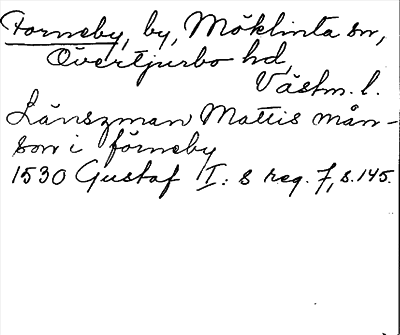 Forneby, by, Möklinta sn,
Övertjurbo hd,
Västm. l.
Länszman Mattis mån-
son i förneby
1530 Gustaf I: s reg. 7, s. 145.